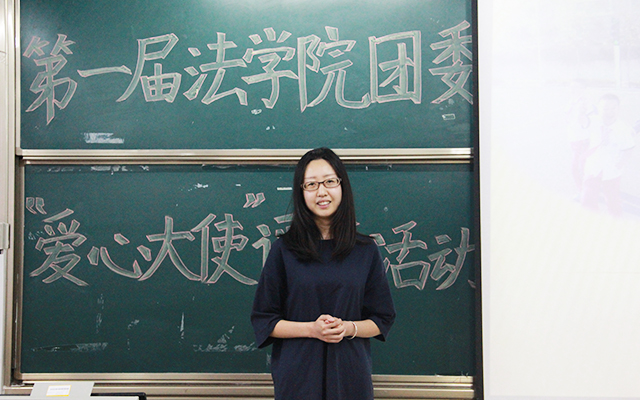 第一届法学院团委
“爱心大使”活动